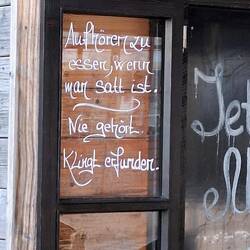 Aufhören zu
essen, wenn
man satt ist.
Nie gehört.
Klingt erfunden.